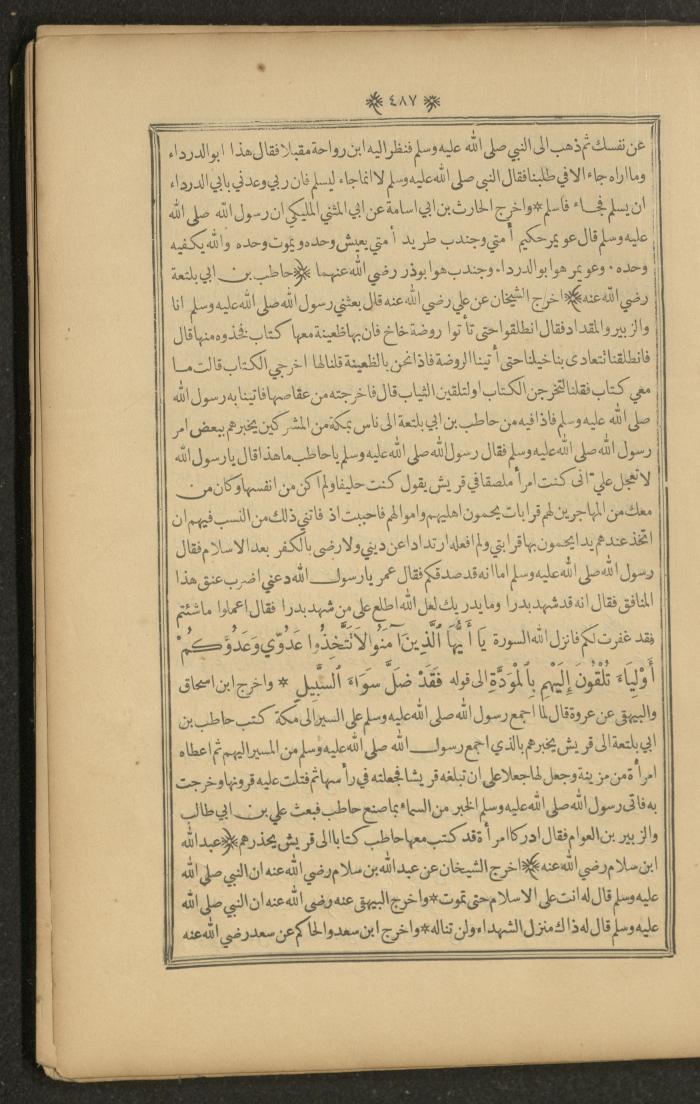 ٤٨٧
عن نفسك ثم ذهب الى النبي صلى الله عليه وسلم فنظر اليه ابن رواحة مقبلا فقال هذا ابو الدرداء
وما اراه جاء الا في طلبنا فقال النبي صلى الله عليه وسلم لا انما جاء ليسلم فان ربي وعدني بابي الدرداء
ان يسلم فجاء فاسلم * واخرج الحارث بن ابي اسامة عن ابي المثني المليكي ان رسول الله صلى الله
عليه وسلم قال عويمر حكيم أمتي وجندب طريد أمتي يعيش وحده ويموت وحده والله يكفيه
وحده ٠ وعويمر هو ابو الدرداء وجندب هو ابو ذر رضي الله عنهما ﴿حاطب بن ابي بلتعة
رضي الله عنه﴾ اخرج الشيخان عن علي رضي الله عنه قال بعثني رسول الله صلى الله عليه وسلم انا
والزبير والمقداد فقال انطلقوا حتى تأتوا روضة خاخ فان بها ظعينة معها كتاب فخذوه منها قال
فانطلقنا تتعادى بنا خيلنا حتى أتينا الروضة فاذا نحن بالظعينة قلنا لها اخرجي الكتاب قالت ما
معي كتاب فقلنا لتخرجن الكتاب او لتلقين الثياب قال فاخرجته من عقاصها فاتينا به رسول الله
صلى الله عليه وسلم فاذا فيه من حاطب بن ابي بلتعة الى ناس بمكة من المشركين يخبرهم ببعض امر
رسول الله صلى الله عليه وسلم فقال رسول الله صلى الله عليه وسلم يا حاطب ما هذا قال يا رسول الله
لا تعجل عليّ انى كنت امرأ ملصقا في قريش يقول كنت حليفا ولم اكن من انفسها وكان من
معك من المهاجرين لهم قرابات يحمون اهليهم واموالهم فاحببت اذ فاتني ذلك من النسب فيهم ان
اتخذ عندهم يدا يحمون بها قرابتي ولم افعله ارتدادا عن ديني ولا رضى بالكفر بعد الاسلام فقال
رسول الله صلى الله عليه وسلم اما انه قد صدقكم فقال عمر يا رسول الله دعني اضرب عنق هذا
المنافق فقال انه قد شهد بدرا وما يدريك لعل الله اطلع على من شهد بدرا فقال اعملوا ما شئتم
فقد غفرت لكم فانزل الله السورة يَا أَيُّهَا الَّذِينَ آمَنُوا لَا تَتَّخِذُوا عَدُوِّي وَعَدُوَّكُمْ
أَوْلِيَاءَ تُلْقُونَ إِلَيْهِمْ بِالْمَوَدَّةِ الى قوله فَقَدْ ضَلَّ سَوَاءَ السَّبِيلِ * واخرج ابن اسحاق
والبيهقي عن عروة قال لما اجمع رسول الله صلى الله عليه وسلم على السير الى مكة كتب حاطب بن
ابي بلتعة الى قريش يخبرهم بالذي اجمع رسول الله صلى الله عليه وسلم من المسير اليهم ثم اعطاه
امرأة من مزينة وجعل لها جعلا على ان تبلغه قريشا فجعلته في رأسها ثم فتلت عليه قرونها وخرجت
به فاتى رسول الله صلى الله عليه وسلم الخبر من السماء بما صنع حاطب فبعث علي بن ابي طالب
والزبير بن العوام فقال ادركا امرأة قد كتب معها حاطب كتابا الى قريش يحذرهم ﴿عبد الله
ابن سلام رضي الله عنه﴾ اخرج الشيخان عن عبد الله بن سلام رضي الله عنه ان النبي صلى الله
عليه وسلم قال له انت على الاسلام حتى تموت * واخرج البيهقي عنه رضي الله عنه ان النبي صلى الله
عليه وسلم قال له ذاك منزل الشهداء ولن تناله * واخرج ابن سعد والحاكم عن سعد رضي الله عنه